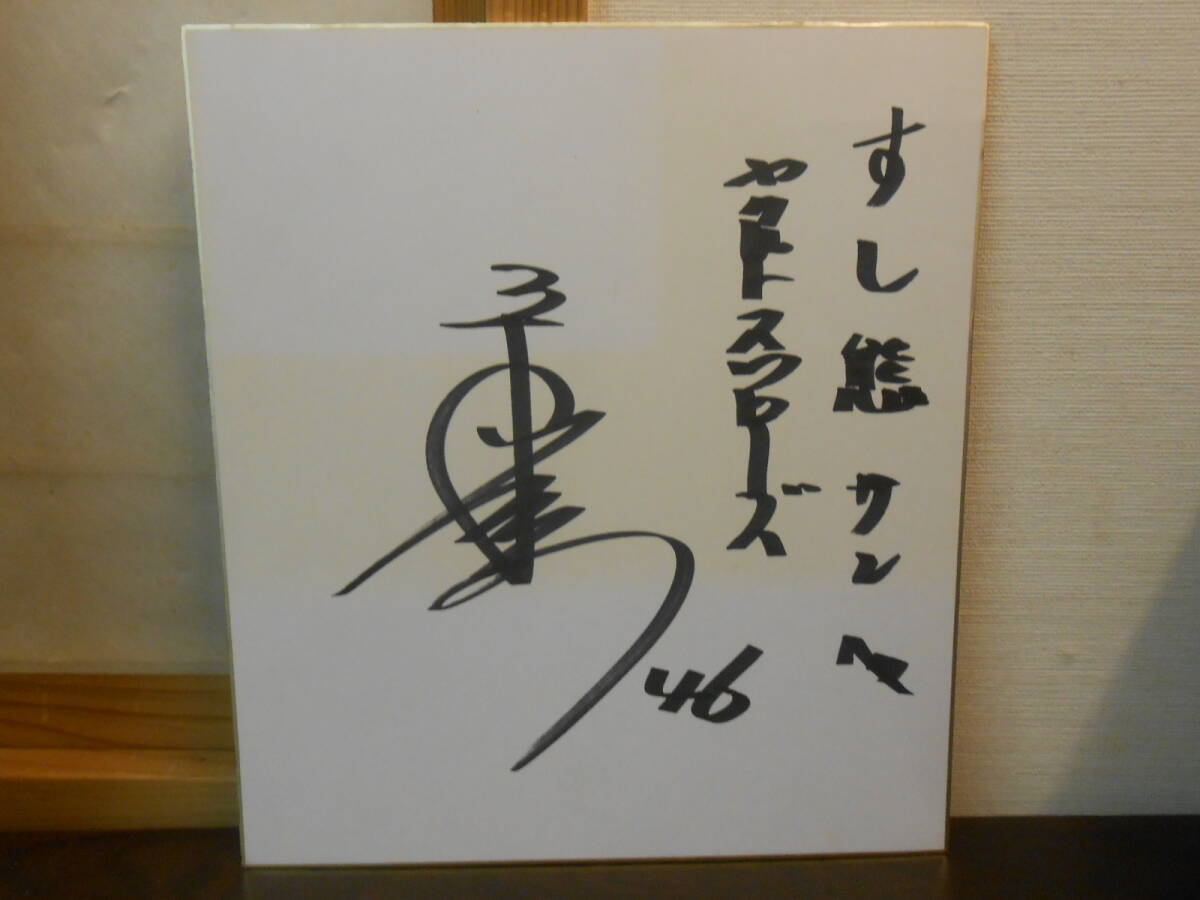 すし態サンへ
ヤクルトスワローズ
46